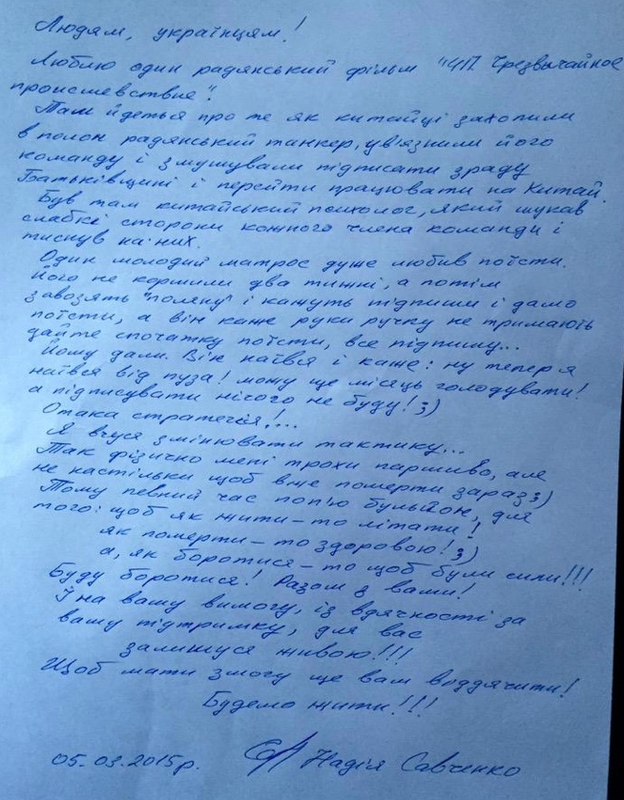 Людям, українцям!
Люблю один радянський фільм "ЧП. Чрезвычайное
происшевствие".
Там йдеться про те як китайці захопили
в полон радянський танкер, ув'язнили його
команду і змушували підписати зраду
Батьківщині і перейти працювати на Китай.
Був там китайський психолог, який шукав
слабкі сторони кожного члена команди і
тиснув на них.
Один молодий матрос дуже любив поїсти.
Його не кормили два тижні, а потім
завозять "поляну" і кажуть підпиши і дамо
поїсти, а він каже руки ручку не тримають
дайте спочатку поїсти, все підпишу...
Йому дали. Він наївся і каже: ну тепер я
наївся від пуза! можу ще місяць голодувати!
а підписувати нічого не буду! ;)
Отака стратегія!...
Я вчуся змінювати тактику...
Так фізично мені трохи паршиво, але
не настільки щоб вже померти зараз ;)
Тому певний час поп'ю бульйон, для
того: щоб як жити – то літати!
як померти – то здоровою! ;)
а, як боротися – то щоб були сили!!!
Буду боротися! Разом з вами!
Й на вашу вимогу, із вдячності за
вашу підтримку, для вас
залишуся живою!!!
Щоб мати змогу ще вам віддячити!
Будемо жити!!!
05.03.2015р. Надія Савченко